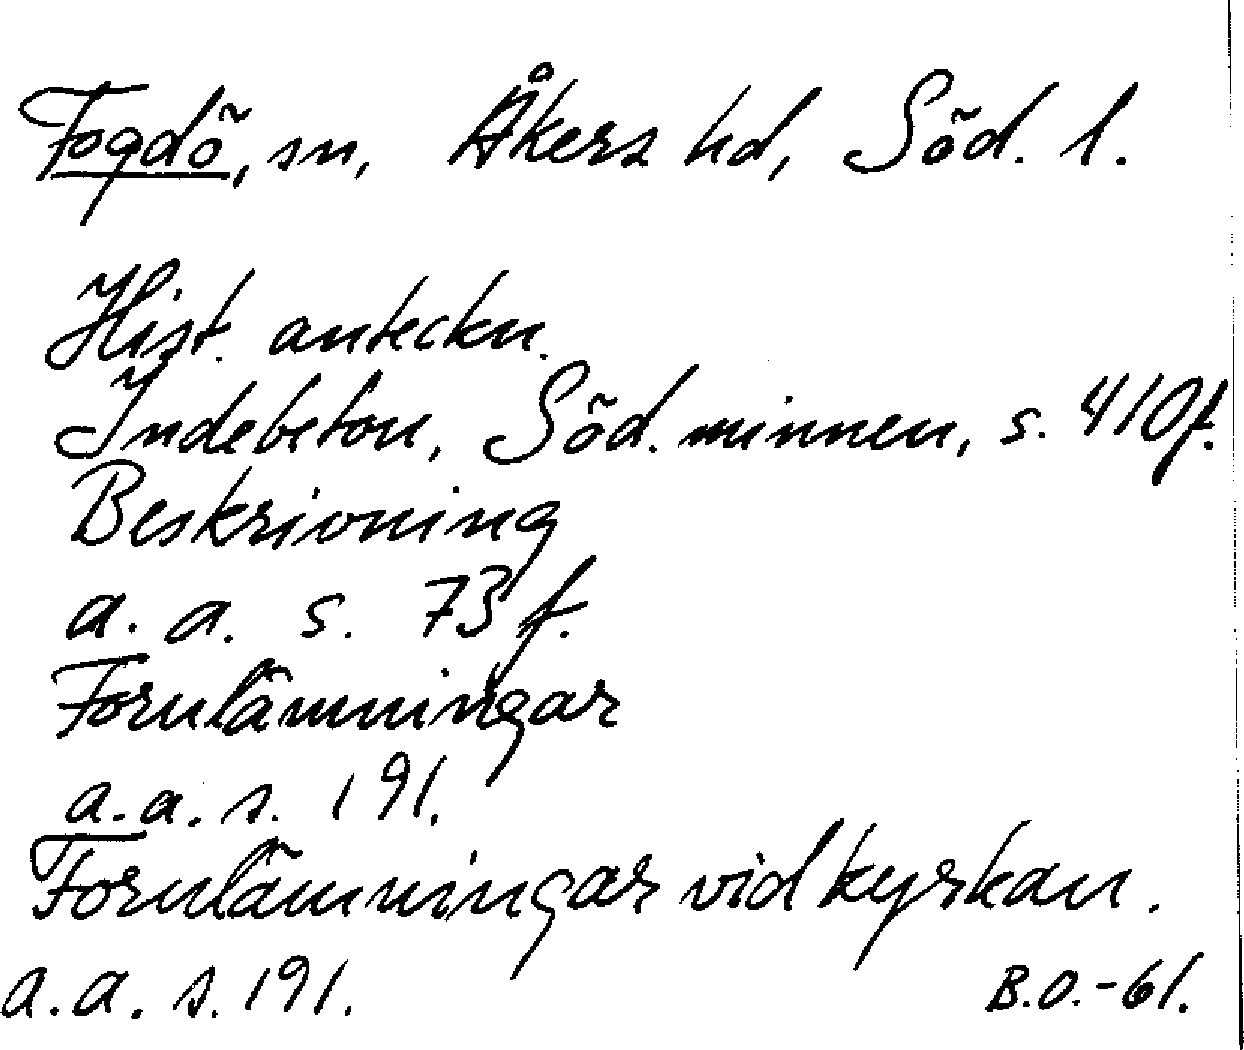 Fogdö, sn, Åkers hd, Söd. l.
Hist. anteckn.
Indebetou, Söd. minnen, s. 410f.
Beskrivning
a. a. s. 73 f.
Fornlämningar
a. a. s. 191.
Fornlämningar vid kyrkan.
a. a. s. 191.
B.O.-61.